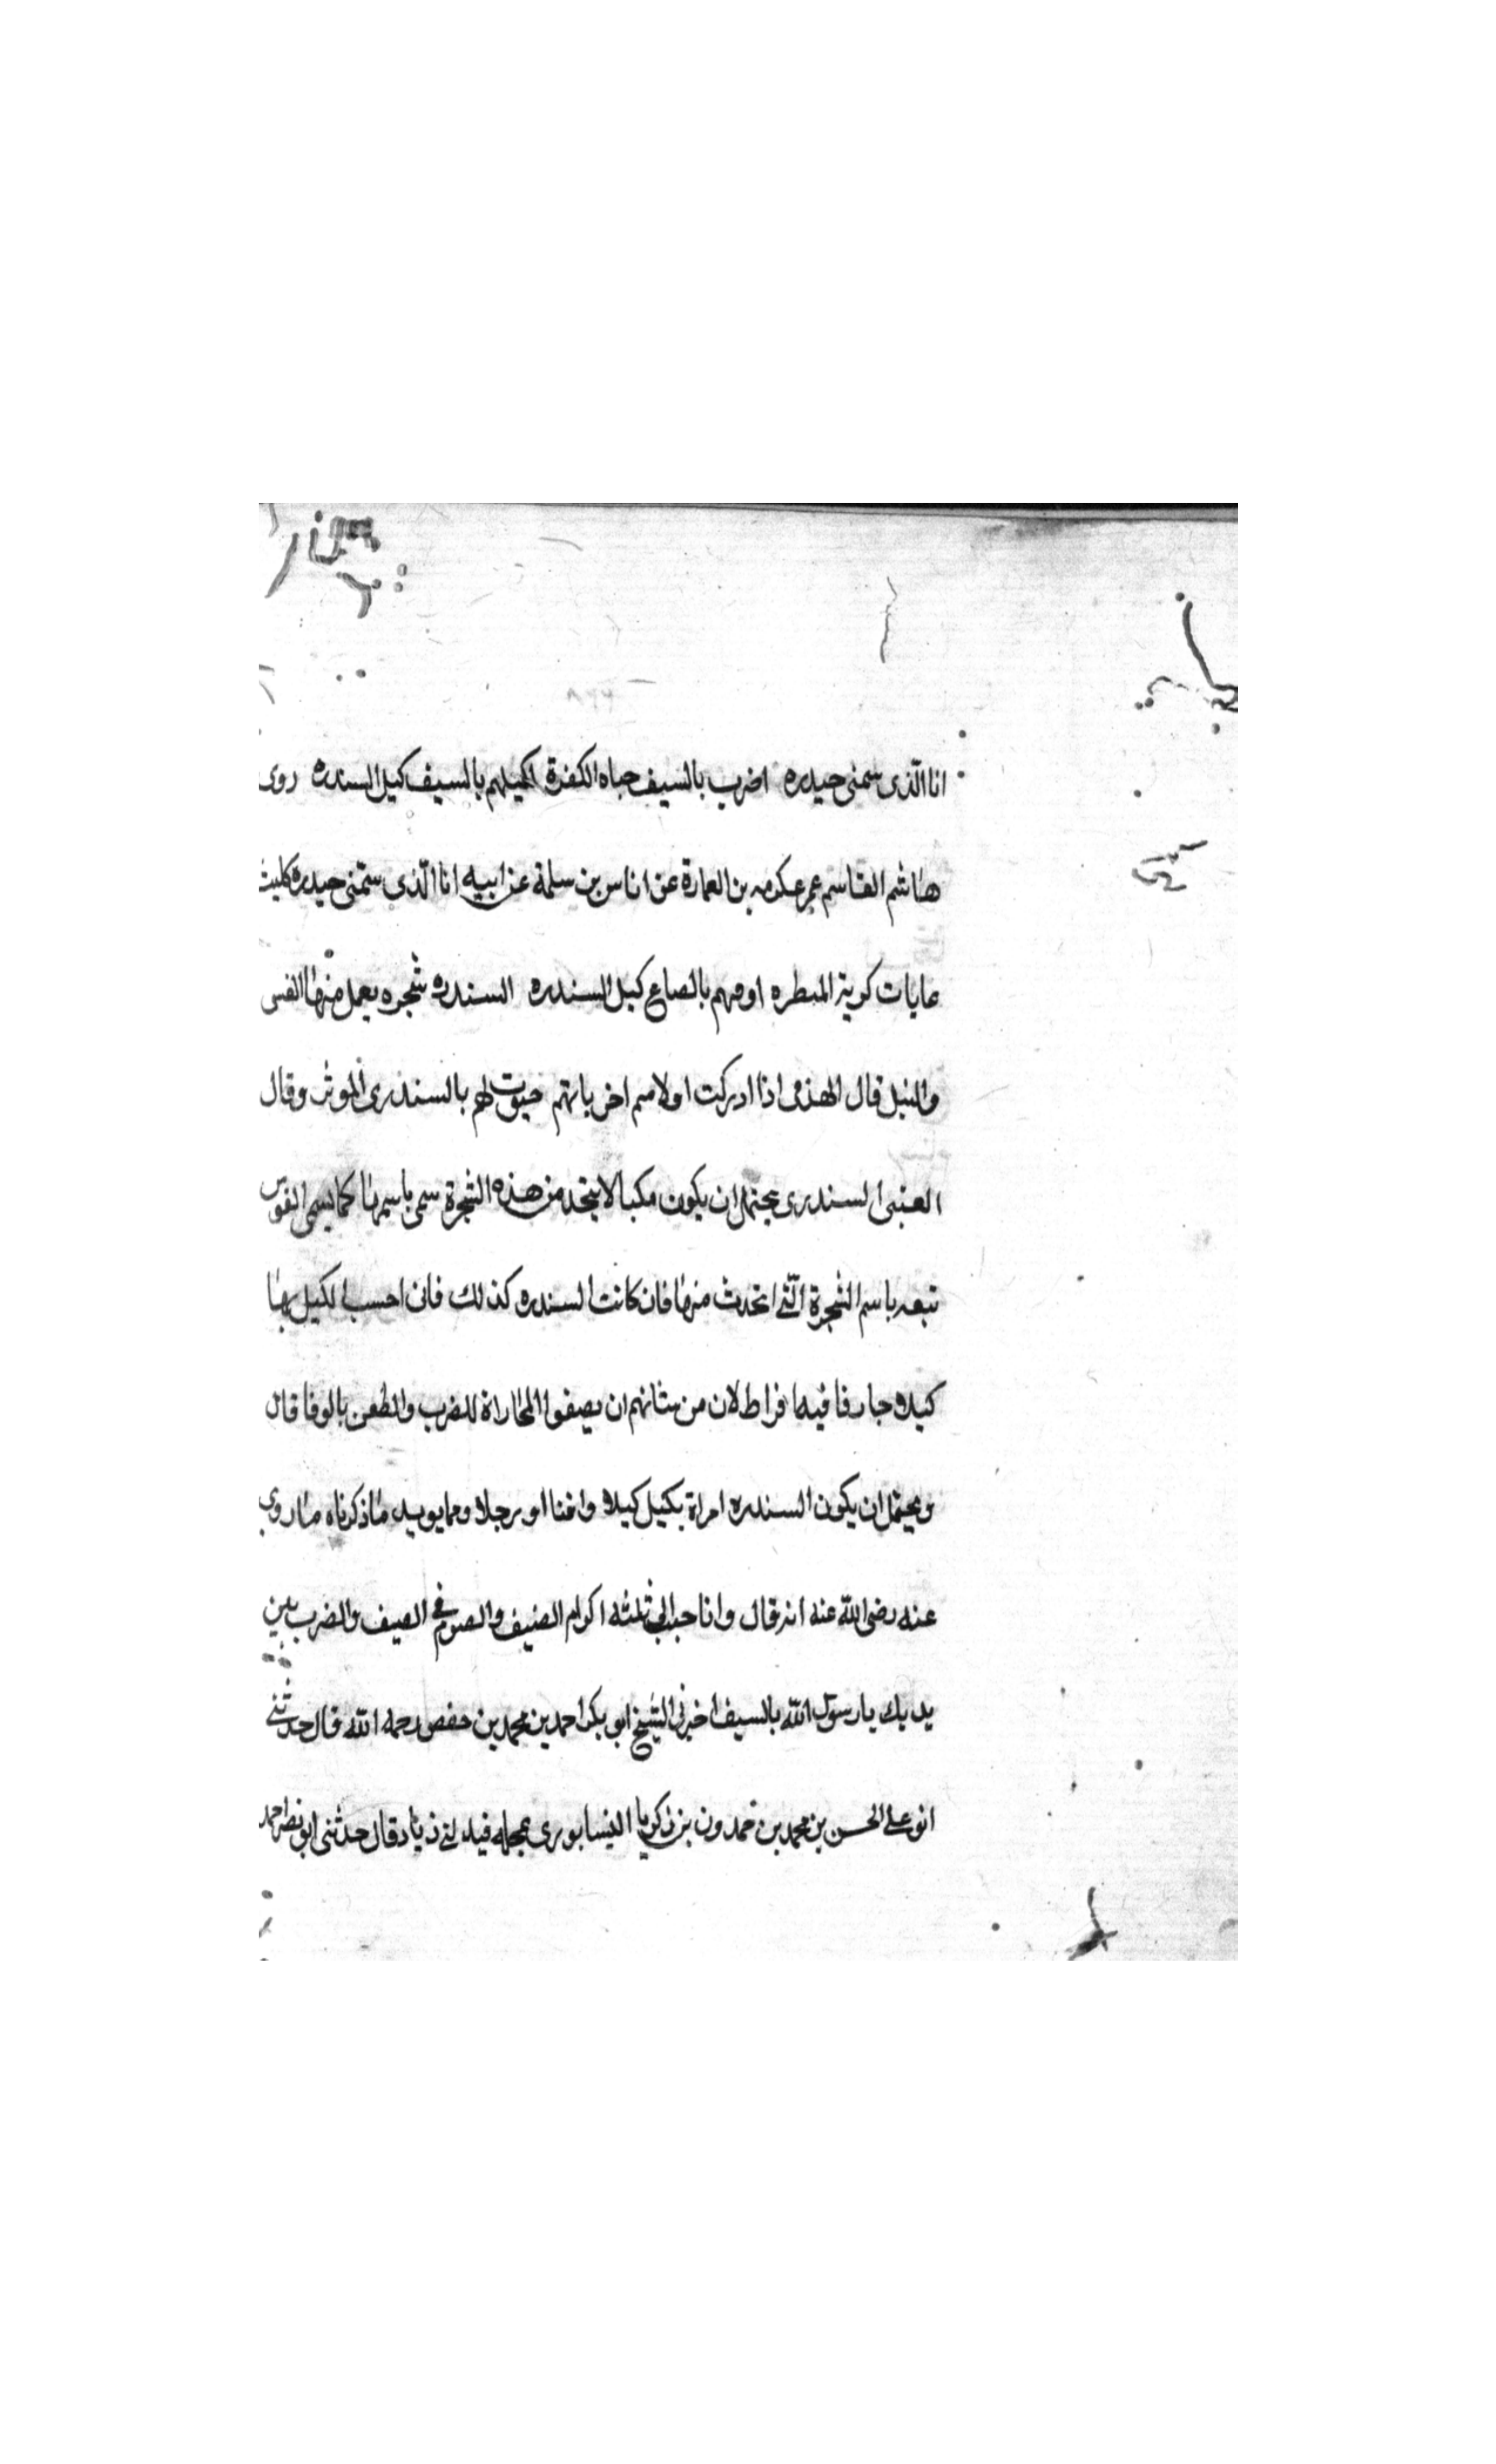 انا الذى سمتنى حيدره اضرب بالسيف جباه الكفرة اكيلهم بالسيف كيل السندره روى
هاشم القاسم عن عكرمه بن العمارة عن اناس بن سلمة عن ابيه انا الذى سمتنى حيدره كليث
غابات كريه المنطره اوفهم بالصاع كيل السندره السندره شجره يعمل منها القسى
والنبل قال الهذلى اذا ادركت اولاهم اخرياتهم حبوت لهم بالسندرى الموثر وقال
العتبى السندرى يحتمل ان يكون مكيالا يتخذ من هذه الشجرة سمى باسمها كما يسمى القوس
نبعه باسم الشجرة التى اتخدت منها فان كانت السندره كذلك فانى احسب الكيل بها
كيلا جارفا فيه افراط لان من شانهم ان يصفوا المجاراة للضرب والطعن بالوفا قال
ويحتمل ان يكون السندره امراة بكيل كيلا وافيا او رجلا ومما يويد ما ذكرناه ما روى
عنه رضى الله عنه انه قال وانا حبب الى ثلثه اكرام الضيف والصوم فى الصيف والضرب بين
يديك يا رسول الله بالسيف اخبرنى الشيخ ابو بكر احمد بن محمد بن حفص رحمه الله قال حدثنى
ابو على الحسن بن محمد بن حمدون بن زكريا النيسابورى قال حدثنى ابو نصر احمد